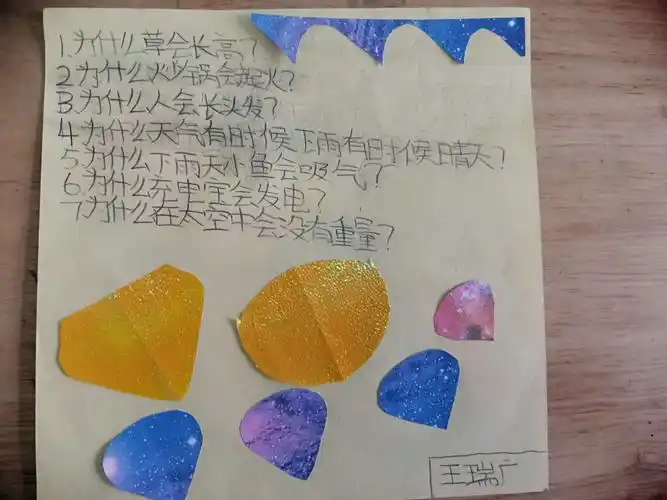 1.为什么草会长高?
2.为什么炒锅会起火?
3.为什么人会长头发?
4.为什么天气有时候下雨有时候晴天?
5.为什么下雨天小鱼会吸气?
6.为什么充电宝会发电?
7.为什么在太空中会没有重量?
王瑞广